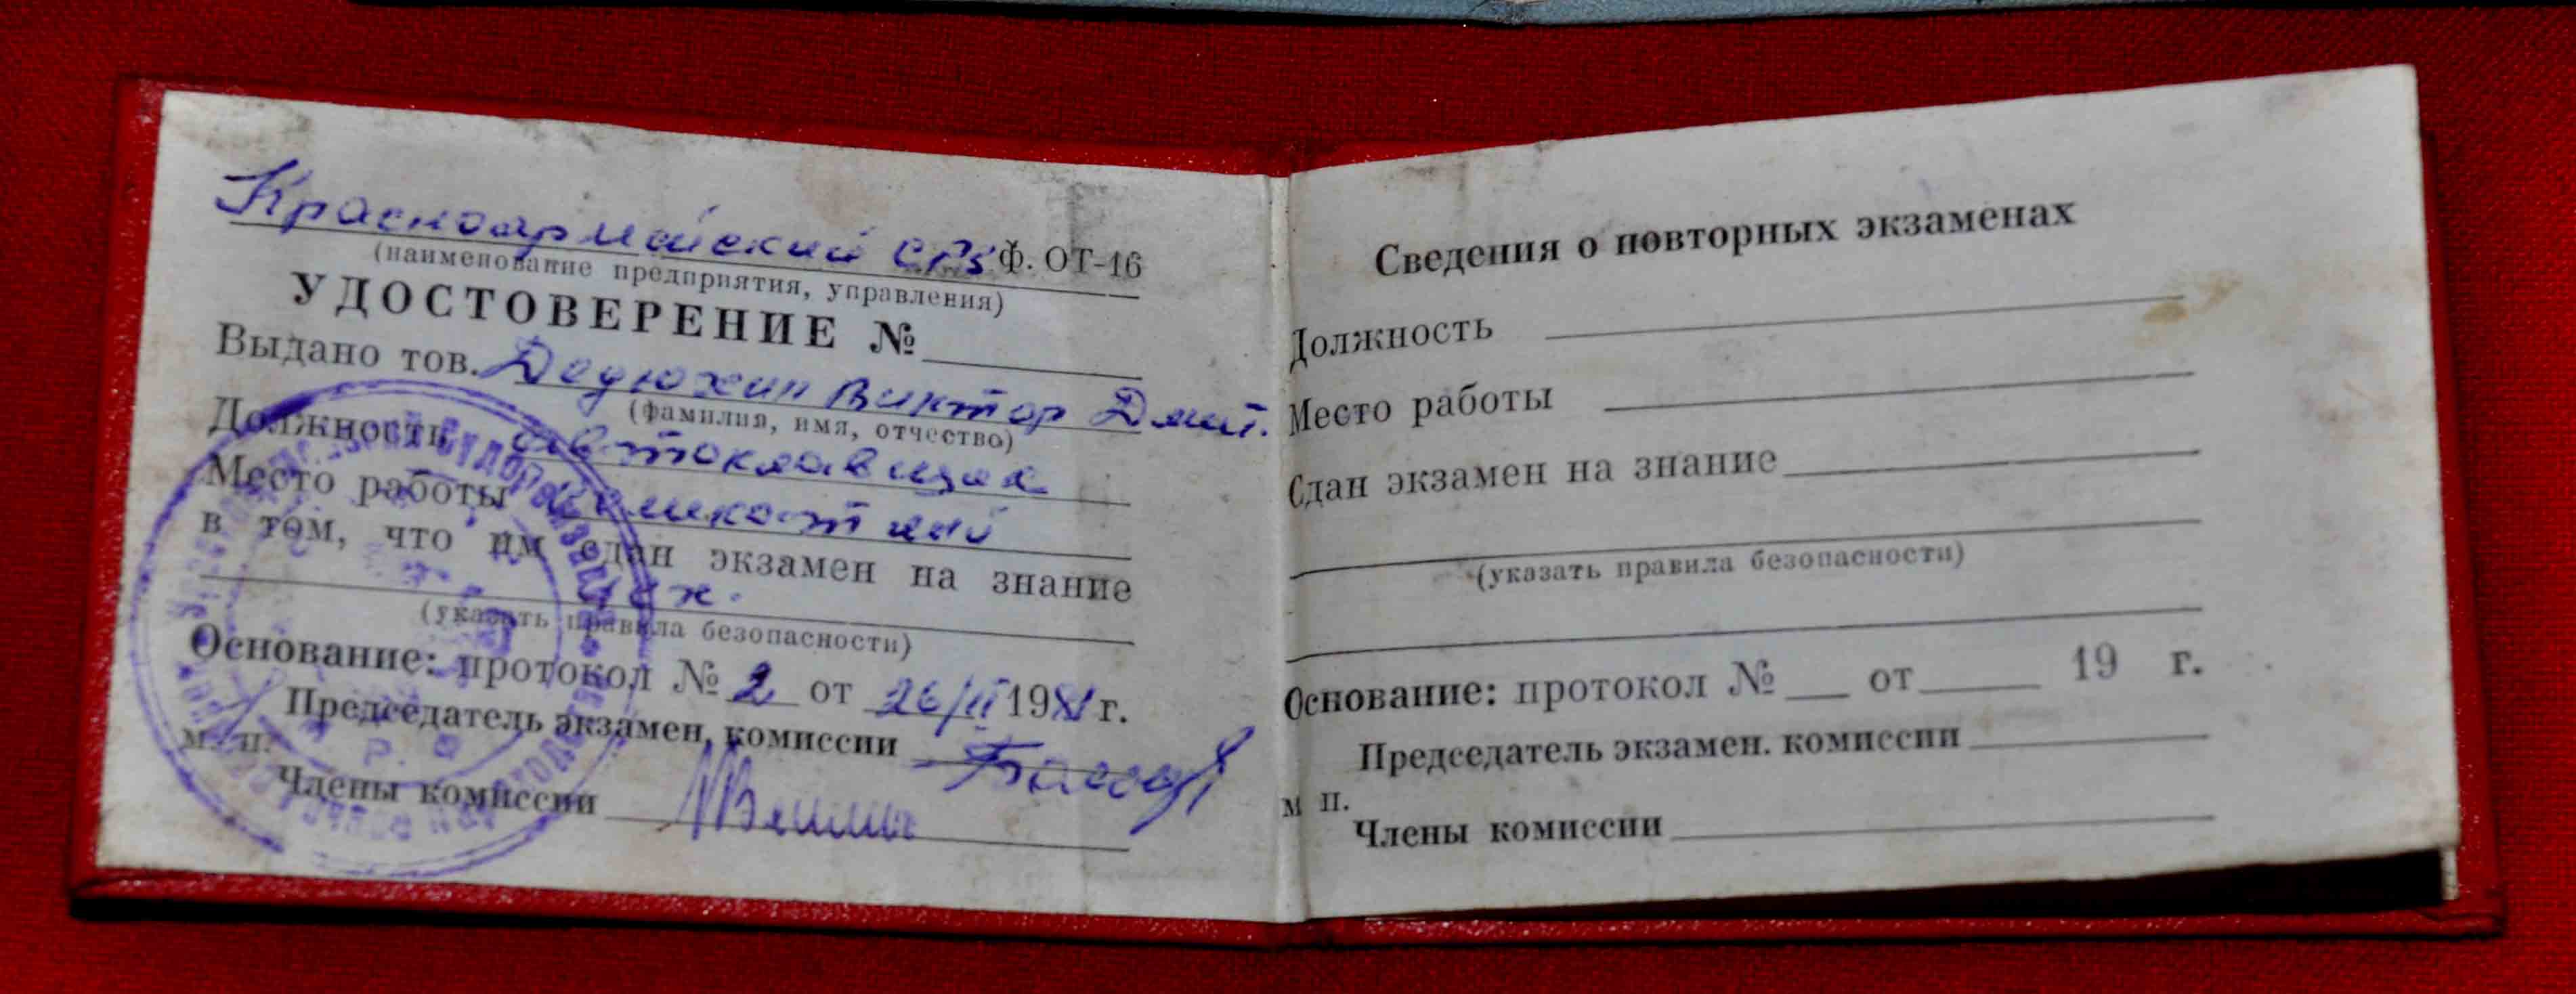 Красноармейский СРБ ф. ОТ-16
(наименование предприятия, управления)
УДОСТОВЕРЕНИЕ №
Выдано тов. Дедюхин Виктор Дмит.
(фамилия, имя, отчество)
Должность автоклавщик
Место работы
в том, что им сдан экзамен на знание
цех.
(указать правила безопасности)
Основание: протокол № 2 от 26/II 1981 г.
Председатель экзамен. комиссии
м. п.
Члены комиссии
Сведения о повторных экзаменах
Должность
Место работы
Сдан экзамен на знание
(указать правила безопасности)
Основание: протокол № от 19 г.
Председатель экзамен. комиссии
м п.
Члены комиссии